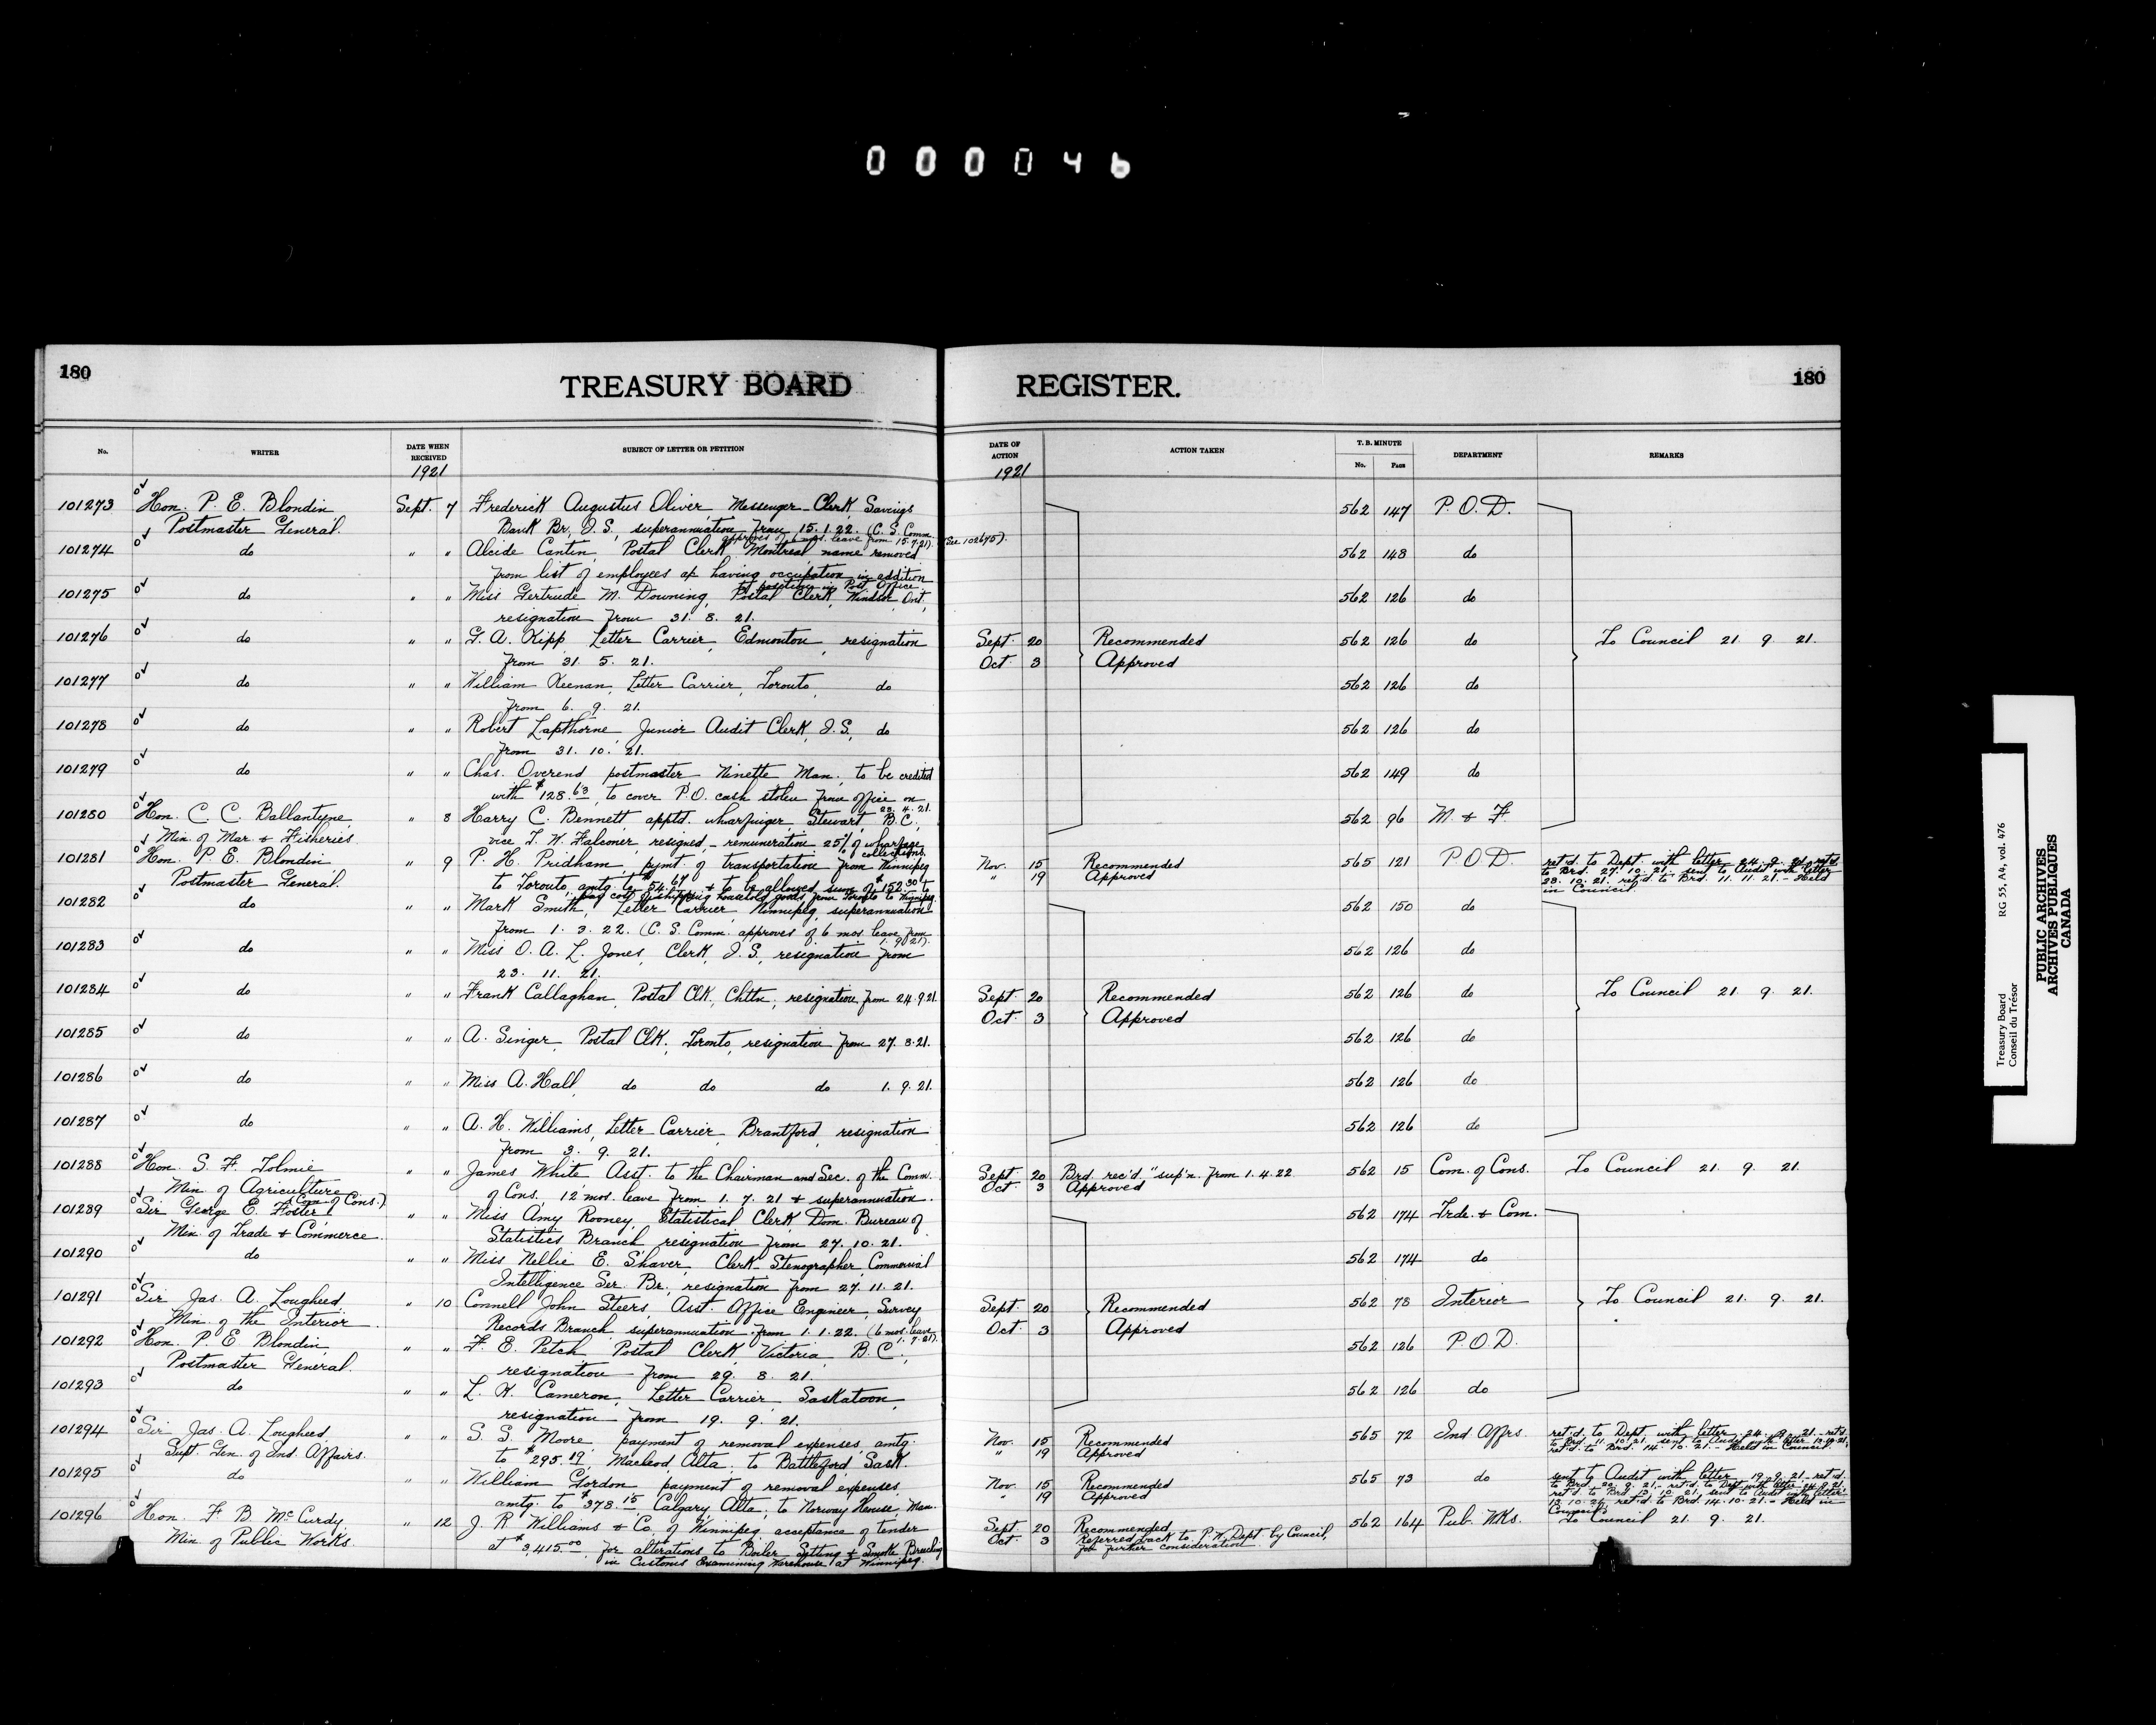 000046
180 TREASURY BOARD REGISTER. 180
No. WRITER DATE WHEN RECEIVED SUBJECT OF LETTER OR PETITION DATE OF ACTION ACTION TAKEN T. B. MINUTE No. PAGE DEPARTMENT REMARKS
1921 1921
101273 Hon. P. E. Blondin Sept. 7 Frederick Augustus Oliver, Messenger-Clerk, Savings 562 147 P.O.D.
Postmaster General. Bank Br., I.S., superannuation from 15.1.22. (C. S. Comm.
approves of 6 mos. leave from 15.7.21). (See 102675).
101274 do " " Alcide Cantin, Postal Clerk Montreal name removed 562 148 do
from list of employees as having occupation in addition
to position in Post Office.
101275 do " " Miss Gertrude M. Downing, Postal Clerk, Windsor, Ont., 562 126 do
resignation from 31. 8. 21.
101276 do " " G. A. Kipp, Letter Carrier, Edmonton, resignation Sept. 20 Recommended 562 126 do To Council 21. 9. 21.
from 31. 5. 21. Oct. 3 Approved
101277 do " " William Keenan, Letter Carrier, Toronto, do 562 126 do
from 6. 9. 21.
101278 do " " Robert Lapthorne, Junior Audit Clerk, I.S., do 562 126 do
from 31. 10. 21.
101279 do " " Chas. Overend postmaster Ninette Man., to be credited 562 149 do
with $128.63, to cover P.O. cash stolen from office on
23. 4. 21.
101280 Hon. C. C. Ballantyne " 8 Harry C. Bennett apptd. wharfinger, Stewart, B.C., 562 96 M. & F.
Min. of Mar. & Fisheries vice T. W. Falconer, resigned, - remuneration 25% of wharfage
collections.
101281 Hon. P. E. Blondin " 9 P. H. Pridham, pymt. of transportation from Winnipeg Nov. 15 Recommended 565 121 P.O.D. ret'd. to Dept. with letter 24. 9. 21. ret'd.
Postmaster General. to Toronto amtg. to $54.67 & to be allowed sum of $152.30 to " 19 Approved to Brd. 27. 10. 21. sent to Audit with letter
pay cost of shipping household goods from Toronto to Winnipeg. 28. 10. 21. ret'd. to Brd. 11. 11. 21. - Held
in Council
101282 do " " Mark Smith, Letter Carrier, Winnipeg, superannuation 562 150 do
from 1. 3. 22. (C. S. Comm. approves of 6 mos. leave from
1. 9. 21).
101283 do " " Miss O. A. L. Jones, Clerk, I.S., resignation from 562 126 do
23. 11. 21.
101284 do " " Frank Callaghan, Postal Clk., Chttn., resignation from 24.9.21. Sept. 20 Recommended 562 126 do To Council 21. 9. 21.
Oct. 3 Approved
101285 do " " A. Singer, Postal Clk., Toronto, resignation from 27. 8. 21. 562 126 do
101286 do " " Miss A. Hall, do do do 1. 9. 21. 562 126 do
101287 do " " A. H. Williams, Letter Carrier, Brantford, resignation 562 126 do
from 3. 9. 21.
101288 Hon. S. F. Tolmie " " James White Asst. to the Chairman and Sec. of the Comm. Sept. 20 Brd. rec'd. "sup'n. from 1.4.22 562 15 Com. of Cons. To Council 21. 9. 21.
Min. of Agriculture of Cons. 12 mos. leave from 1. 7. 21 & superannuation. Oct. 3 Approved
(Com. of Cons.)
101289 Sir George E. Foster " " Miss Amy Rooney, Statistical Clerk, Dom. Bureau of 562 174 Trde. & Com.
Min. of Trade & Commerce. Statistics Branch resignation from 27. 10. 21.
101290 do " " Miss Nellie E. Shaver, Clerk-Stenographer, Commercial 562 174 do
Intelligence Ser. Br., resignation from 27. 11. 21.
101291 Sir Jas. A. Lougheed " 10 Connell John Steers, Asst. Office Engineer, Survey Sept. 20 Recommended 562 78 Interior To Council 21. 9. 21.
Min. of the Interior. Records Branch, superannuation from 1.1.22. (6 mos. leave Oct. 3 Approved
1. 7. 21).
101292 Hon. P. E. Blondin, " " F. E. Petch Postal Clerk, Victoria, B.C., 562 126 P.O.D.
Postmaster General. resignation from 29. 8. 21.
101293 do " " L. K. Cameron, Letter Carrier, Saskatoon, 562 126 do
resignation from 19. 9. 21.
101294 Sir Jas. A. Lougheed, " " S. S. Moore, payment of removal expenses, amtg. Nov. 15 Recommended 565 72 Ind. Affrs. ret'd. to Dept. with letter 24. 9. 21. - ret'd.
Supt. Gen. of Ind. Affairs. to $295.19, Macleod, Alta. to Battleford, Sask. " 19 Approved to Brd. 11. 10. 21. sent to Audit with letter 12.10.21.
ret'd. to Brd. 14. 10. 21. - Held in Council.
101295 do " " William Gordon payment of removal expenses, Nov. 15 Recommended 565 73 do sent to Audit with letter 19. 9. 21. - ret'd.
amtg. to $378.15 Calgary, Alta., to Norway House, Man. " 19 Approved to Brd. 22. 9. 21. - ret'd. to Dept. with letter 24.9.21.
ret'd. to Brd. 10. 21. sent to Audit with letter
12. 10. 21, ret'd. to Brd. 14. 10. 21. - Held in
Council.
101296 Hon. F. B. McCurdy " 12 J. R. Williams & Co. of Winnipeg, acceptance of tender Sept. 20 Recommended 562 164 Pub. Wks. To Council 21. 9. 21.
Min. of Public Works. at $3,415.00, for alterations to Boiler Setting & Smoke Breeching Oct. 3 Referred back to P.W. Dept. by Council,
in Customs Examining Warehouse at Winnipeg. for further consideration.
Treasury Board RG 55, A4, vol. 476
Conseil du Trésor
PUBLIC ARCHIVES
ARCHIVES PUBLIQUES
CANADA